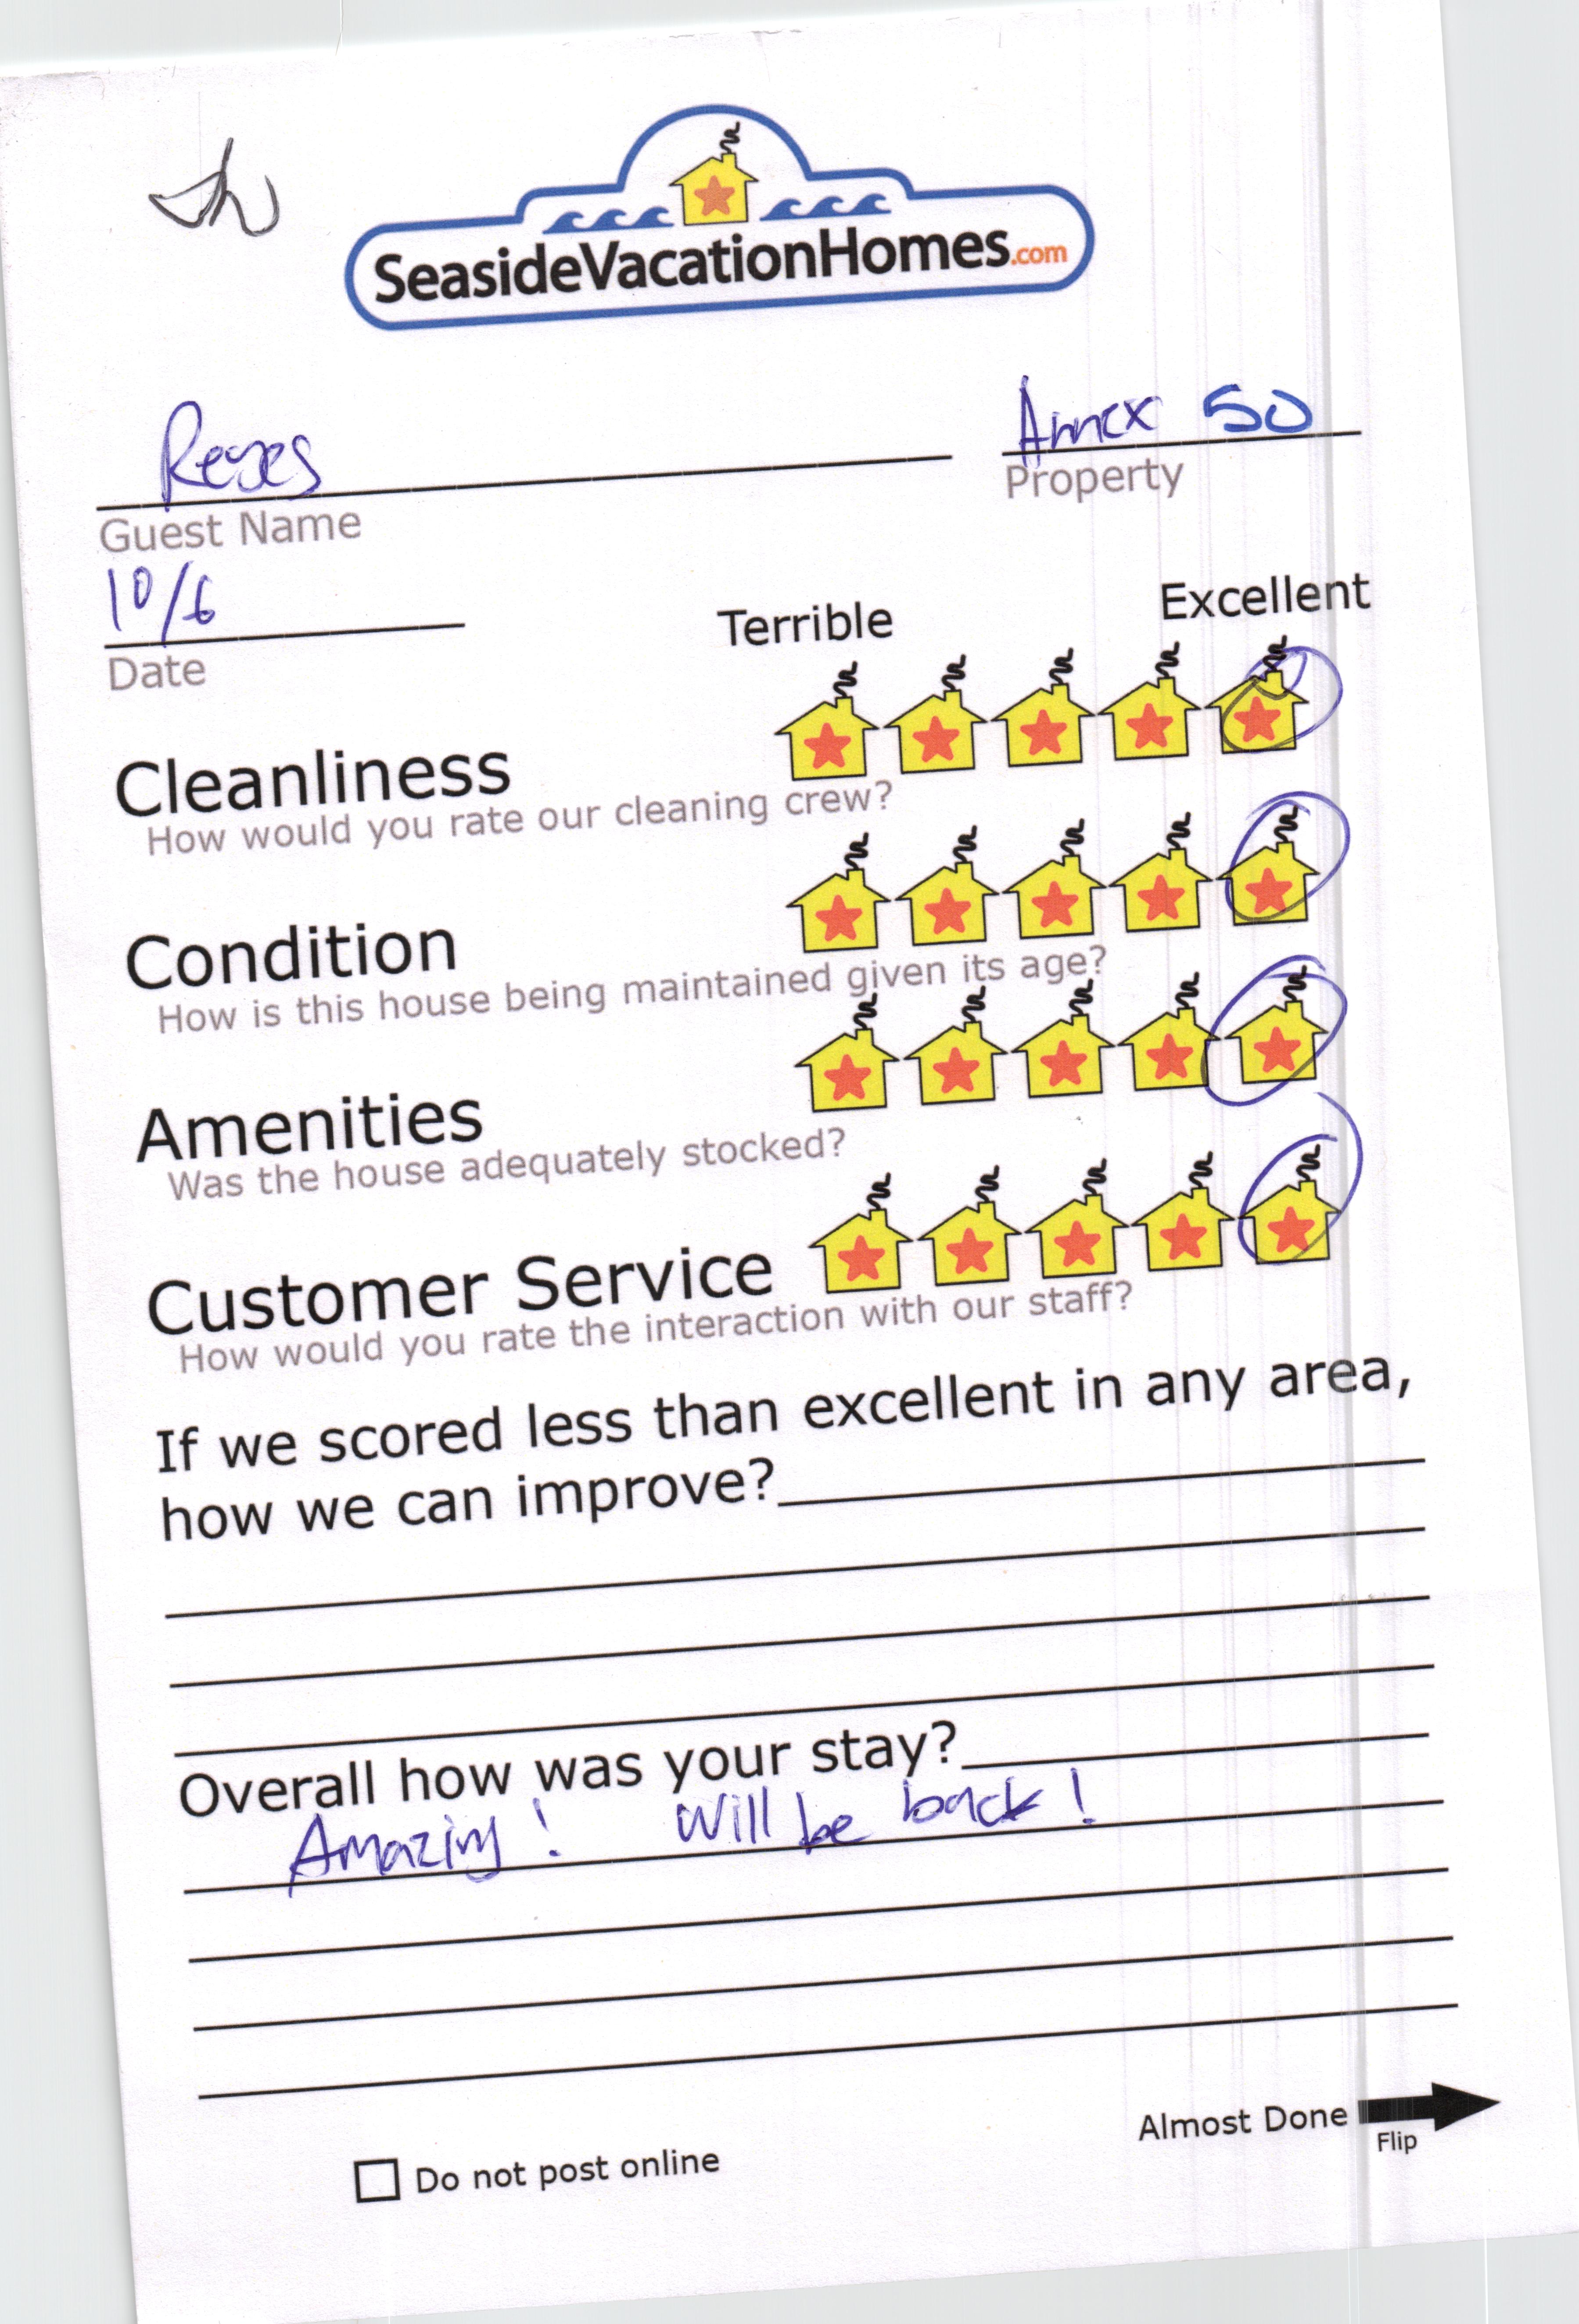 SeasideVacationHomes.com
Reyes
Annex 50
Guest Name
Property
10/6
Date
Terrible
Excellent
Cleanliness
How would you rate our cleaning crew?
Condition
How is this house being maintained given its age?
Amenities
Was the house adequately stocked?
Customer Service
How would you rate the interaction with our staff?
If we scored less than excellent in any area,
how we can improve?
Overall how was your stay?
Amazing! Will be back!
Almost Done
Flip
Do not post online